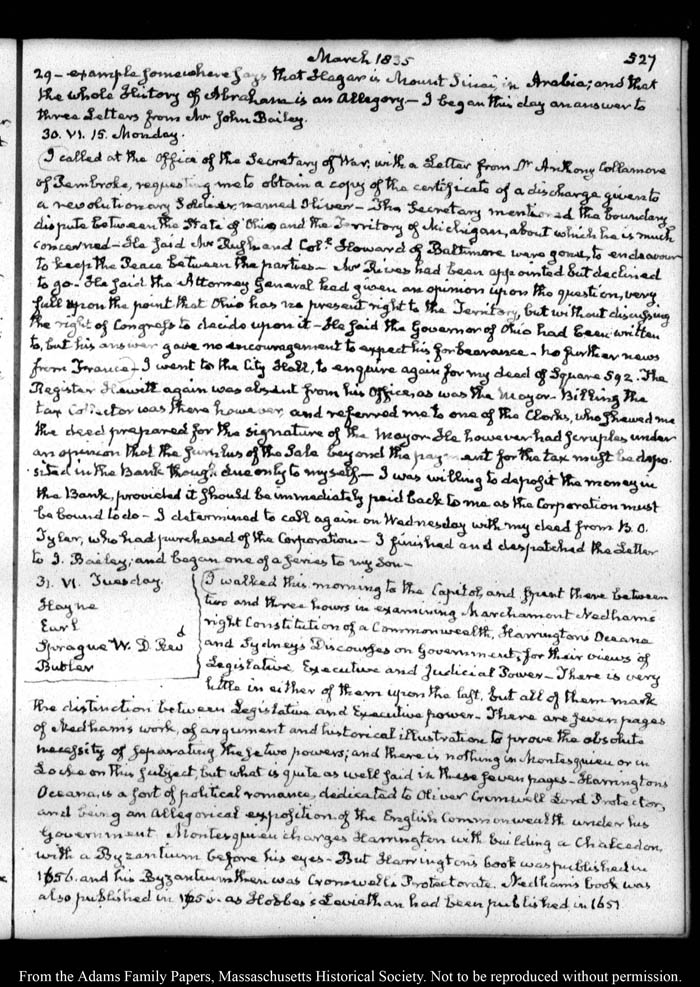 March 1835 527
29 - example somewhere says that Hagar is Mount Sinai, in Arabia; and that
the whole History of Abraham is an Allegory - I began this day an answer to
three Letters from Mr John Bailey.
30. VI. 15. Monday.
I called at the Office of the Secretary of War, with a Letter from Dr Anthony Collamore
of Pembroke, requesting me to obtain a copy of the certificate of a discharge given to
a revolutionary Soldier, named Oliver - The Secretary mentioned the boundary
dispute between the State of Ohio and the Territory of Michigan, about which he is much
concerned - He said Mr Rush and Coll. Howard of Baltimore were gone, to endeavour
to keep the Peace between the parties - Mr Rives had been appointed but declined
to go - He said the Attorney General had given an opinion upon the question, very
full upon the point that Ohio has no present right to the Territory, but without discussing
the right of Congress to decide upon it - He said the Governor of Ohio had been written
to, but his answer gave no encouragement to expect his forbearance - no further news
from France - I went to the City Hall, to enquire again for my deed of Square 592. The
Register Hewitt again was absent from his Office, as was the Mayor - Billing the
tax Collector was there however, and referred me to one of the Clerks, who shewed me
the deed prepared for the signature of the Mayor. He however had scruples under
an opinion that the surplus of the Sale beyond the payment for the tax must be depo-
sited in the Bank though due only to myself - I was willing to deposit the money in
the Bank, provided it should be immediately paid back to me as the Corporation must
be bound to do - I determined to call again on Wednesday with my deed from B. O.
Tyler, who had purchased of the Corporation - I finished and despatched the Letter
to J. Bailey, and began one of a series to my Son -
31. VI. Tuesday.
Hayne
Earl
Sprague W. D. Revd
Butler
I walked this morning to the Capitol, and spent there between
two and three hours in examining Marchamont Nedham's
right Constitution of a Commonwealth, Harrington's Oceana
and Sydney's Discourses on Government, for their views of
Legislative Executive and Judicial Power - There is very
little in either of them upon the last, but all of them mark
the distinction between Legislative and Executive power - There are seven pages
of Nedham's work, of argument and historical illustration to prove the absolute
necessity of separating these two powers; and there is nothing in Montesquieu or in
Locke on this subject, but what is quite as well said in these seven pages - Harrington's
Oceana, is a sort of political romance, dedicated to Oliver Cromwell Lord Protector,
and being an Allegorical exposition of the English Commonwealth under his
Government. Montesquieu charges Harrington with building a Chalcedon,
with a Byzantium before his eyes - But Harrington's book was published in
1656. and his Byzantium then was Cromwell's Protectorate. Nedham's book was
also published in 1656. as Hobbes's Leviathan had been published in 1651
From the Adams Family Papers, Massachusetts Historical Society. Not to be reproduced without permission.